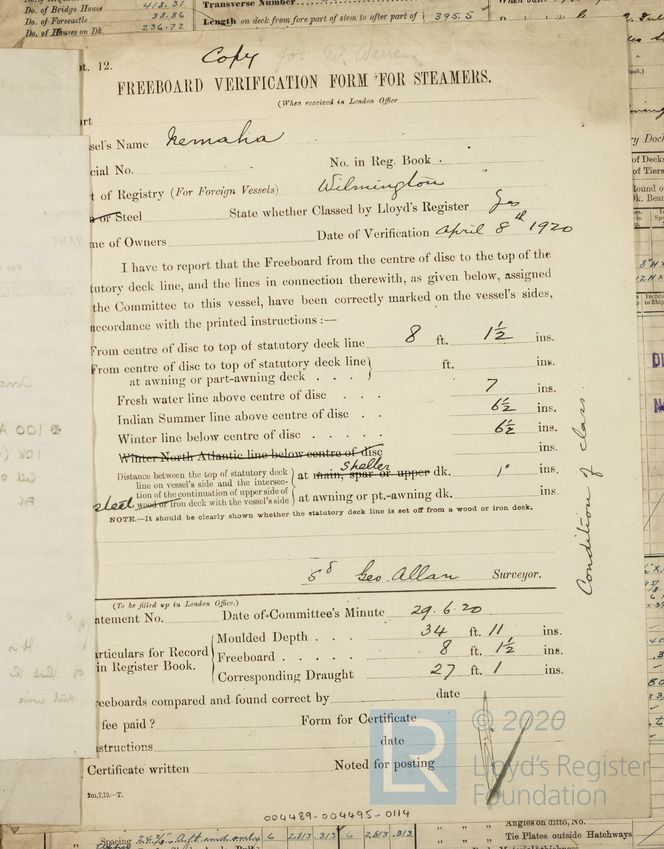 Do. of Bridge House 418.31
Do. of Forecastle 38.36
Do. of Houses on Dk. 236.72
Transverse Number
Length on deck from fore part of stem to after part of 395.5
pt. 12.
Copy for
FREEBOARD VERIFICATION FORM FOR STEAMERS.
(When received in London Office
rt
sel's Name Nemaha
cial No. No. in Reg. Book
t of Registry (For Foreign Vessels) Wilmington
n or Steel State whether Classed by Lloyd's Register Yes
me of Owners Date of Verification April 8th 1920
I have to report that the Freeboard from the centre of disc to the top of the
tutory deck line, and the lines in connection therewith, as given below, assigned
the Committee to this vessel, have been correctly marked on the vessel's sides,
accordance with the printed instructions :—
From centre of disc to top of statutory deck line 8 ft. 1½ ins.
From centre of disc to top of statutory deck line ft. ins.
at awning or part-awning deck . . .
Fresh water line above centre of disc . . . 7 ins.
Indian Summer line above centre of disc . . 6½ ins.
Winter line below centre of disc . . . . . 6½ ins.
Winter North Atlantic line below centre of disc ins.
Distance between the top of statutory deck
line on vessel's side and the intersec-
tion of the continuation of upper side of
steel wood or iron deck with the vessel's side
at main, spar or upper shelter dk. 1" ins.
at awning or pt.-awning dk. ins.
NOTE.—It should be clearly shown whether the statutory deck line is set off from a wood or iron deck.
Geo. Allan Surveyor.
Condition of class.
(To be filled up in London Office.)
atement No. Date of Committee's Minute 29.6.20
articulars for Record
in Register Book.
Moulded Depth . . . 34 ft. 11 ins.
Freeboard . . . . . 8 ft. 1½ ins.
Corresponding Draught 27 ft. 1 ins.
reeboards compared and found correct by date
fee paid ? Forms for Certificate
structions date
Certificate written Noted for posting
2m,7,10.—T.
LR
© 2020
Lloyd's Register
Foundation
004489-004495-0114
Spacing 6 2,813 .313 6 2,813 .313
Angles on ditto, No.
Tie Plates outside Hatchways